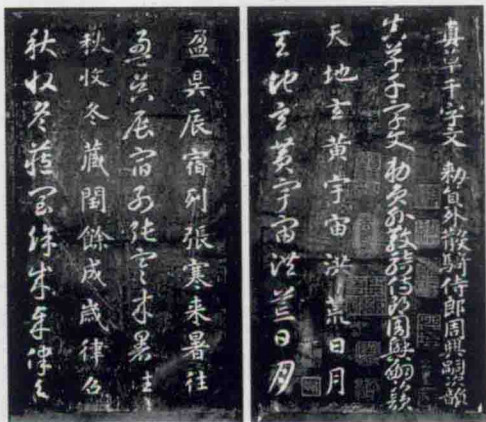 真草千字文 勅員外散騎侍郎周興嗣次韻
真草千字文勅員外散騎侍郎周興嗣次韻
天地玄黃宇宙洪荒日月
天地玄黃宇宙洪荒日月
盈昃辰宿列張寒来暑往
盈昃辰宿列張寒来暑往
秋收冬藏閏餘成歲律呂
秋收冬藏閏餘成歲律呂